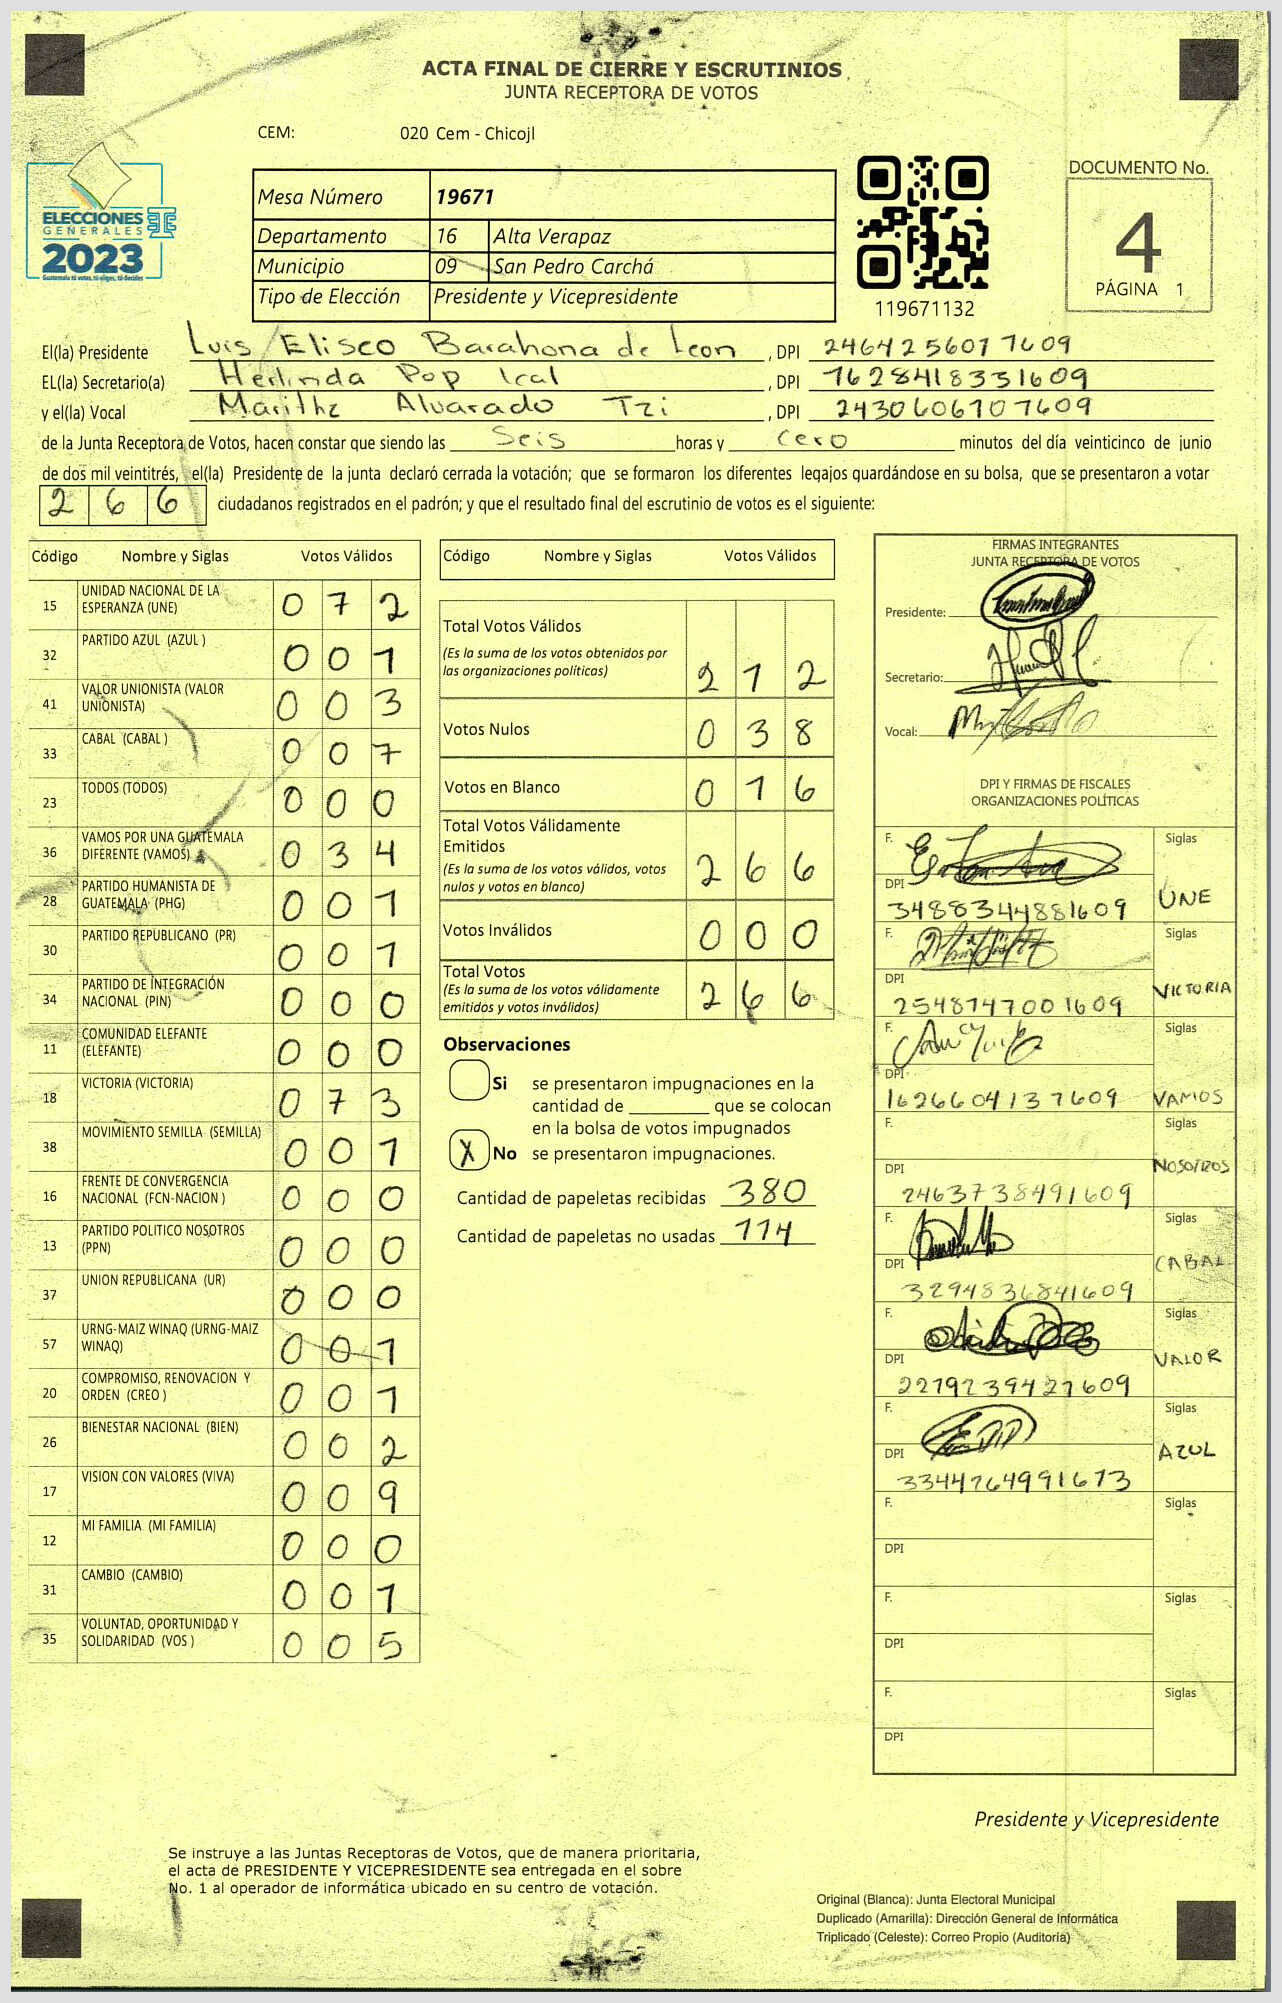 ACTA FINAL DE CIERRE Y ESCRUTINIOS
JUNTA RECEPTORA DE VOTOS
CEM: 020 Cem - Chicojl
ELECCIONES
GENERALES
2023
Guatemala tú votas, tú eliges, tú decides
Mesa Número 19671
Departamento 16 Alta Verapaz
Municipio 09 San Pedro Carchá
Tipo de Elección Presidente y Vicepresidente
119671132
DOCUMENTO No.
4
PÁGINA 1
El(la) Presidente Luis Eliseo Barahona de Leon , DPI 2464256017609
EL(la) Secretario(a) Herlinda Pop Ical , DPI 1628418331609
y el(la) Vocal Maritha Alvarado Tzi , DPI 2430606701609
de la Junta Receptora de Votos, hacen constar que siendo las Seis horas y cero minutos del día veinticinco de junio
de dos mil veintitrés, el(la) Presidente de la junta declaró cerrada la votación; que se formaron los diferentes legajos guardándose en su bolsa, que se presentaron a votar
266 ciudadanos registrados en el padrón; y que el resultado final del escrutinio de votos es el siguiente:
Código Nombre y Siglas Votos Válidos
15 UNIDAD NACIONAL DE LA ESPERANZA (UNE) 072
32 PARTIDO AZUL (AZUL ) 001
41 VALOR UNIONISTA (VALOR UNIONISTA) 003
33 CABAL (CABAL ) 007
23 TODOS (TODOS) 000
36 VAMOS POR UNA GUATEMALA DIFERENTE (VAMOS) 034
28 PARTIDO HUMANISTA DE GUATEMALA (PHG) 001
30 PARTIDO REPUBLICANO (PR) 001
34 PARTIDO DE INTEGRACIÓN NACIONAL (PIN) 000
11 COMUNIDAD ELEFANTE (ELEFANTE) 000
18 VICTORIA (VICTORIA) 073
38 MOVIMIENTO SEMILLA (SEMILLA) 001
16 FRENTE DE CONVERGENCIA NACIONAL (FCN-NACION ) 000
13 PARTIDO POLITICO NOSOTROS (PPN) 000
37 UNION REPUBLICANA (UR) 000
57 URNG-MAIZ WINAQ (URNG-MAIZ WINAQ) 001
20 COMPROMISO, RENOVACION Y ORDEN (CREO ) 001
26 BIENESTAR NACIONAL (BIEN) 002
17 VISION CON VALORES (VIVA) 009
12 MI FAMILIA (MI FAMILIA) 000
31 CAMBIO (CAMBIO) 001
35 VOLUNTAD, OPORTUNIDAD Y SOLIDARIDAD (VOS ) 005
Código Nombre y Siglas Votos Válidos
Total Votos Válidos
(Es la suma de los votos obtenidos por
las organizaciones políticas) 212
Votos Nulos 038
Votos en Blanco 016
Total Votos Válidamente
Emitidos
(Es la suma de los votos válidos, votos
nulos y votos en blanco) 266
Votos Inválidos 000
Total Votos
(Es la suma de los votos válidamente
emitidos y votos inválidos) 266
Observaciones
Si se presentaron impugnaciones en la
cantidad de ________ que se colocan
en la bolsa de votos impugnados
X No se presentaron impugnaciones.
Cantidad de papeletas recibidas 380
Cantidad de papeletas no usadas 114
FIRMAS INTEGRANTES
JUNTA RECEPTORA DE VOTOS
Presidente:
Secretario:
Vocal:
DPI Y FIRMAS DE FISCALES
ORGANIZACIONES POLÍTICAS
F. Siglas
DPI 3488344881609 UNE
F. Siglas
DPI 2548747001609 VICTORIA
F. Siglas
DPI 1626604137609 VAMOS
F. Siglas
DPI 2463738491609 NOSOTROS
F. Siglas
DPI 3294836841609 CABAL
F. Siglas
DPI 2279239421609 VALOR
F. Siglas
DPI 3344764991613 AZUL
F. Siglas
DPI
F. Siglas
DPI
F. Siglas
DPI
Presidente y Vicepresidente
Se instruye a las Juntas Receptoras de Votos, que de manera prioritaria,
el acta de PRESIDENTE Y VICEPRESIDENTE sea entregada en el sobre
No. 1 al operador de informática ubicado en su centro de votación.
Original (Blanca): Junta Electoral Municipal
Duplicado (Amarilla): Dirección General de Informática
Triplicado (Celeste): Correo Propio (Auditoría)